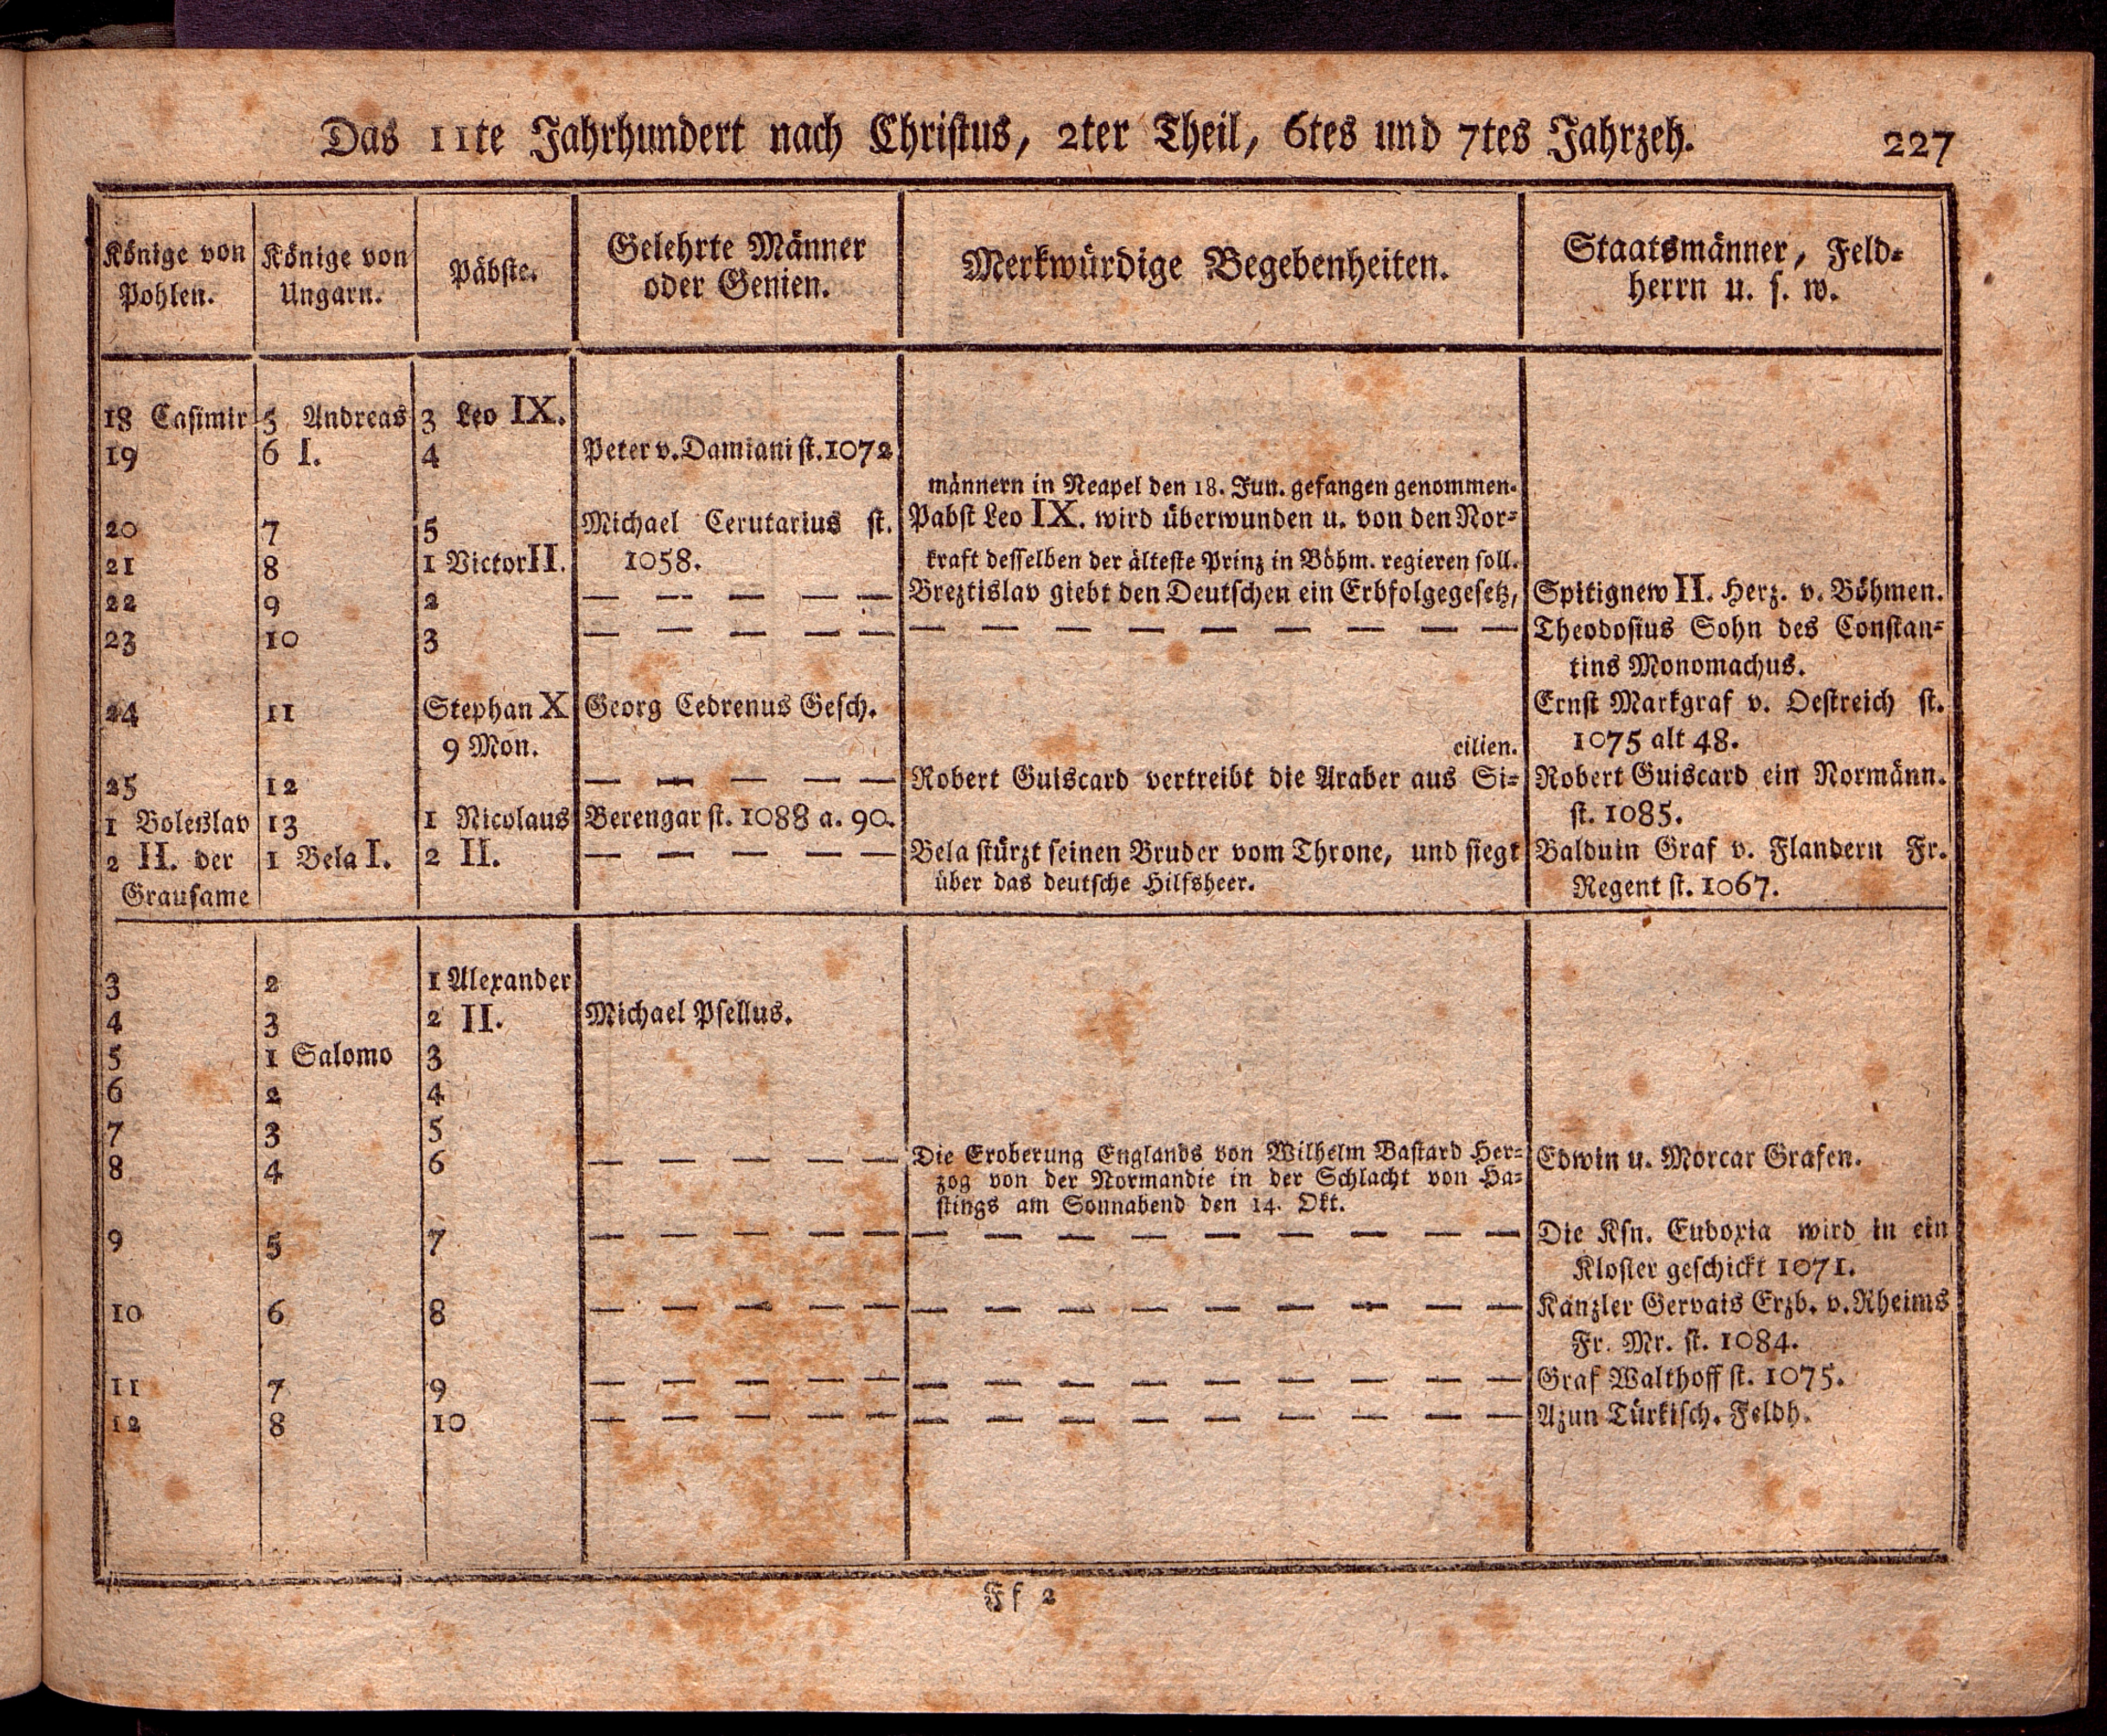 Das 11te Jahrhundert nach Christus, 2ter Theil, 6tes und 7tes Jahrzeh. 227
Könige von
Pohlen.
Könige von
Ungarn.
Päbste.
Gelehrte Männer
oder Genien.
Merkwürdige Begebenheiten.
Staatsmänner, Feld-
herrn u. s. w.
18 Casimir 5 Andreas 3 Leo IX.
19 6 I. 4 Peter v. Damiani st. 1072
männern in Neapel den 18. Jun. gefangen genommen.
20 7 5 Michael Cerutarius st. Pabst Leo IX. wird überwunden u. von den Nor-
21 8 1 Victor II. 1058. kraft desselben der älteste Prinz in Böhm. regieren soll.
22 9 2 — — — — — Breztislav giebt den Deutschen ein Erbfolgegesetz, Spitignew II. Herz. v. Böhmen.
23 10 3 — — — — — — — — — — — — — — Theodosius Sohn des Constan-
tins Monomachus.
24 11 Stephan X Georg Cedrenus Gesch. Ernst Markgraf v. Oestreich st.
9 Mon. cilien. 1075 alt 48.
25 12 — — — — — Robert Guiscard vertreibt die Araber aus Si- Robert Guiscard ein Normänn.
1 Boleslav 13 1 Nicolaus Berengar st. 1088 a. 90. st. 1085.
2 II. der 1 Bela I. 2 II. — — — — — Bela stürzt seinen Bruder vom Throne, und siegt Balduin Graf v. Flandern Fr.
Grausame über das deutsche Hilfsheer. Regent st. 1067.
3 2 1 Alexander
4 3 2 II. Michael Psellus.
5 1 Salomo 3
6 2 4
7 3 5
8 4 6 — — — — — Die Eroberung Englands von Wilhelm Bastard Her- Edwin u. Morcar Grafen.
zog von der Normandie in der Schlacht von Ha-
stings am Sonnabend den 14. Okt.
9 5 7 — — — — — — — — — — — — — — Die Ksn. Eudoxia wird in ein
Kloster geschickt 1071.
10 6 8 — — — — — — — — — — — — — — Kanzler Gervais Erzb. v. Rheims
Fr. Mr. st. 1084.
11 7 9 — — — — — — — — — — — — — — Graf Walthoff st. 1075.
12 8 10 — — — — — — — — — — — — — — Azun Türkisch. Feldh.
Ff 2